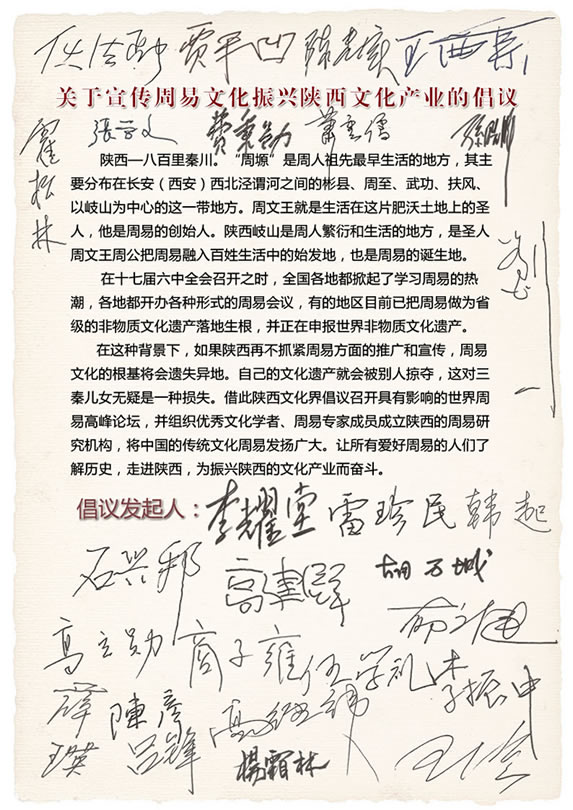 贾平凹 陈忠实
关于宣传周易文化振兴陕西文化产业的倡议
霍松林
费秉勋 萧云儒
陕西—八百里秦川。“周塬”是周人祖先最早生活的地方，其主
要分布在长安（西安）西北泾渭河之间的彬县、周至、武功、扶风、
以岐山为中心的这一带地方。周文王就是生活在这片肥沃土地上的圣
人，他是周易的创始人。陕西岐山是周人繁衍和生活的地方，是圣人
周文王周公把周易融入百姓生活中的始发地，也是周易的诞生地。
在十七届六中全会召开之时，全国各地都掀起了学习周易的热
潮，各地都开办各种形式的周易会议，有的地区目前已把周易做为省
级的非物质文化遗产落地生根，并正在申报世界非物质文化遗产。
在这种背景下，如果陕西再不抓紧周易方面的推广和宣传，周易
文化的根基将会遗失异地。自己的文化遗产就会被别人掠夺，这对三
秦儿女无疑是一种损失。借此陕西文化界倡议召开具有影响的世界周
易高峰论坛，并组织优秀文化学者、周易专家成员成立陕西的周易研
究机构，将中国的传统文化周易发扬广大。让所有爱好周易的人们了
解历史，走进陕西，为振兴陕西的文化产业而奋斗。
倡议发起人：李耀堂 雷珍民 韩起
石兴邦 高建群 胡万城
高立勋 商子雍 伍学礼 李振中
薛瑛 陈彦 吕锋
杨霜林